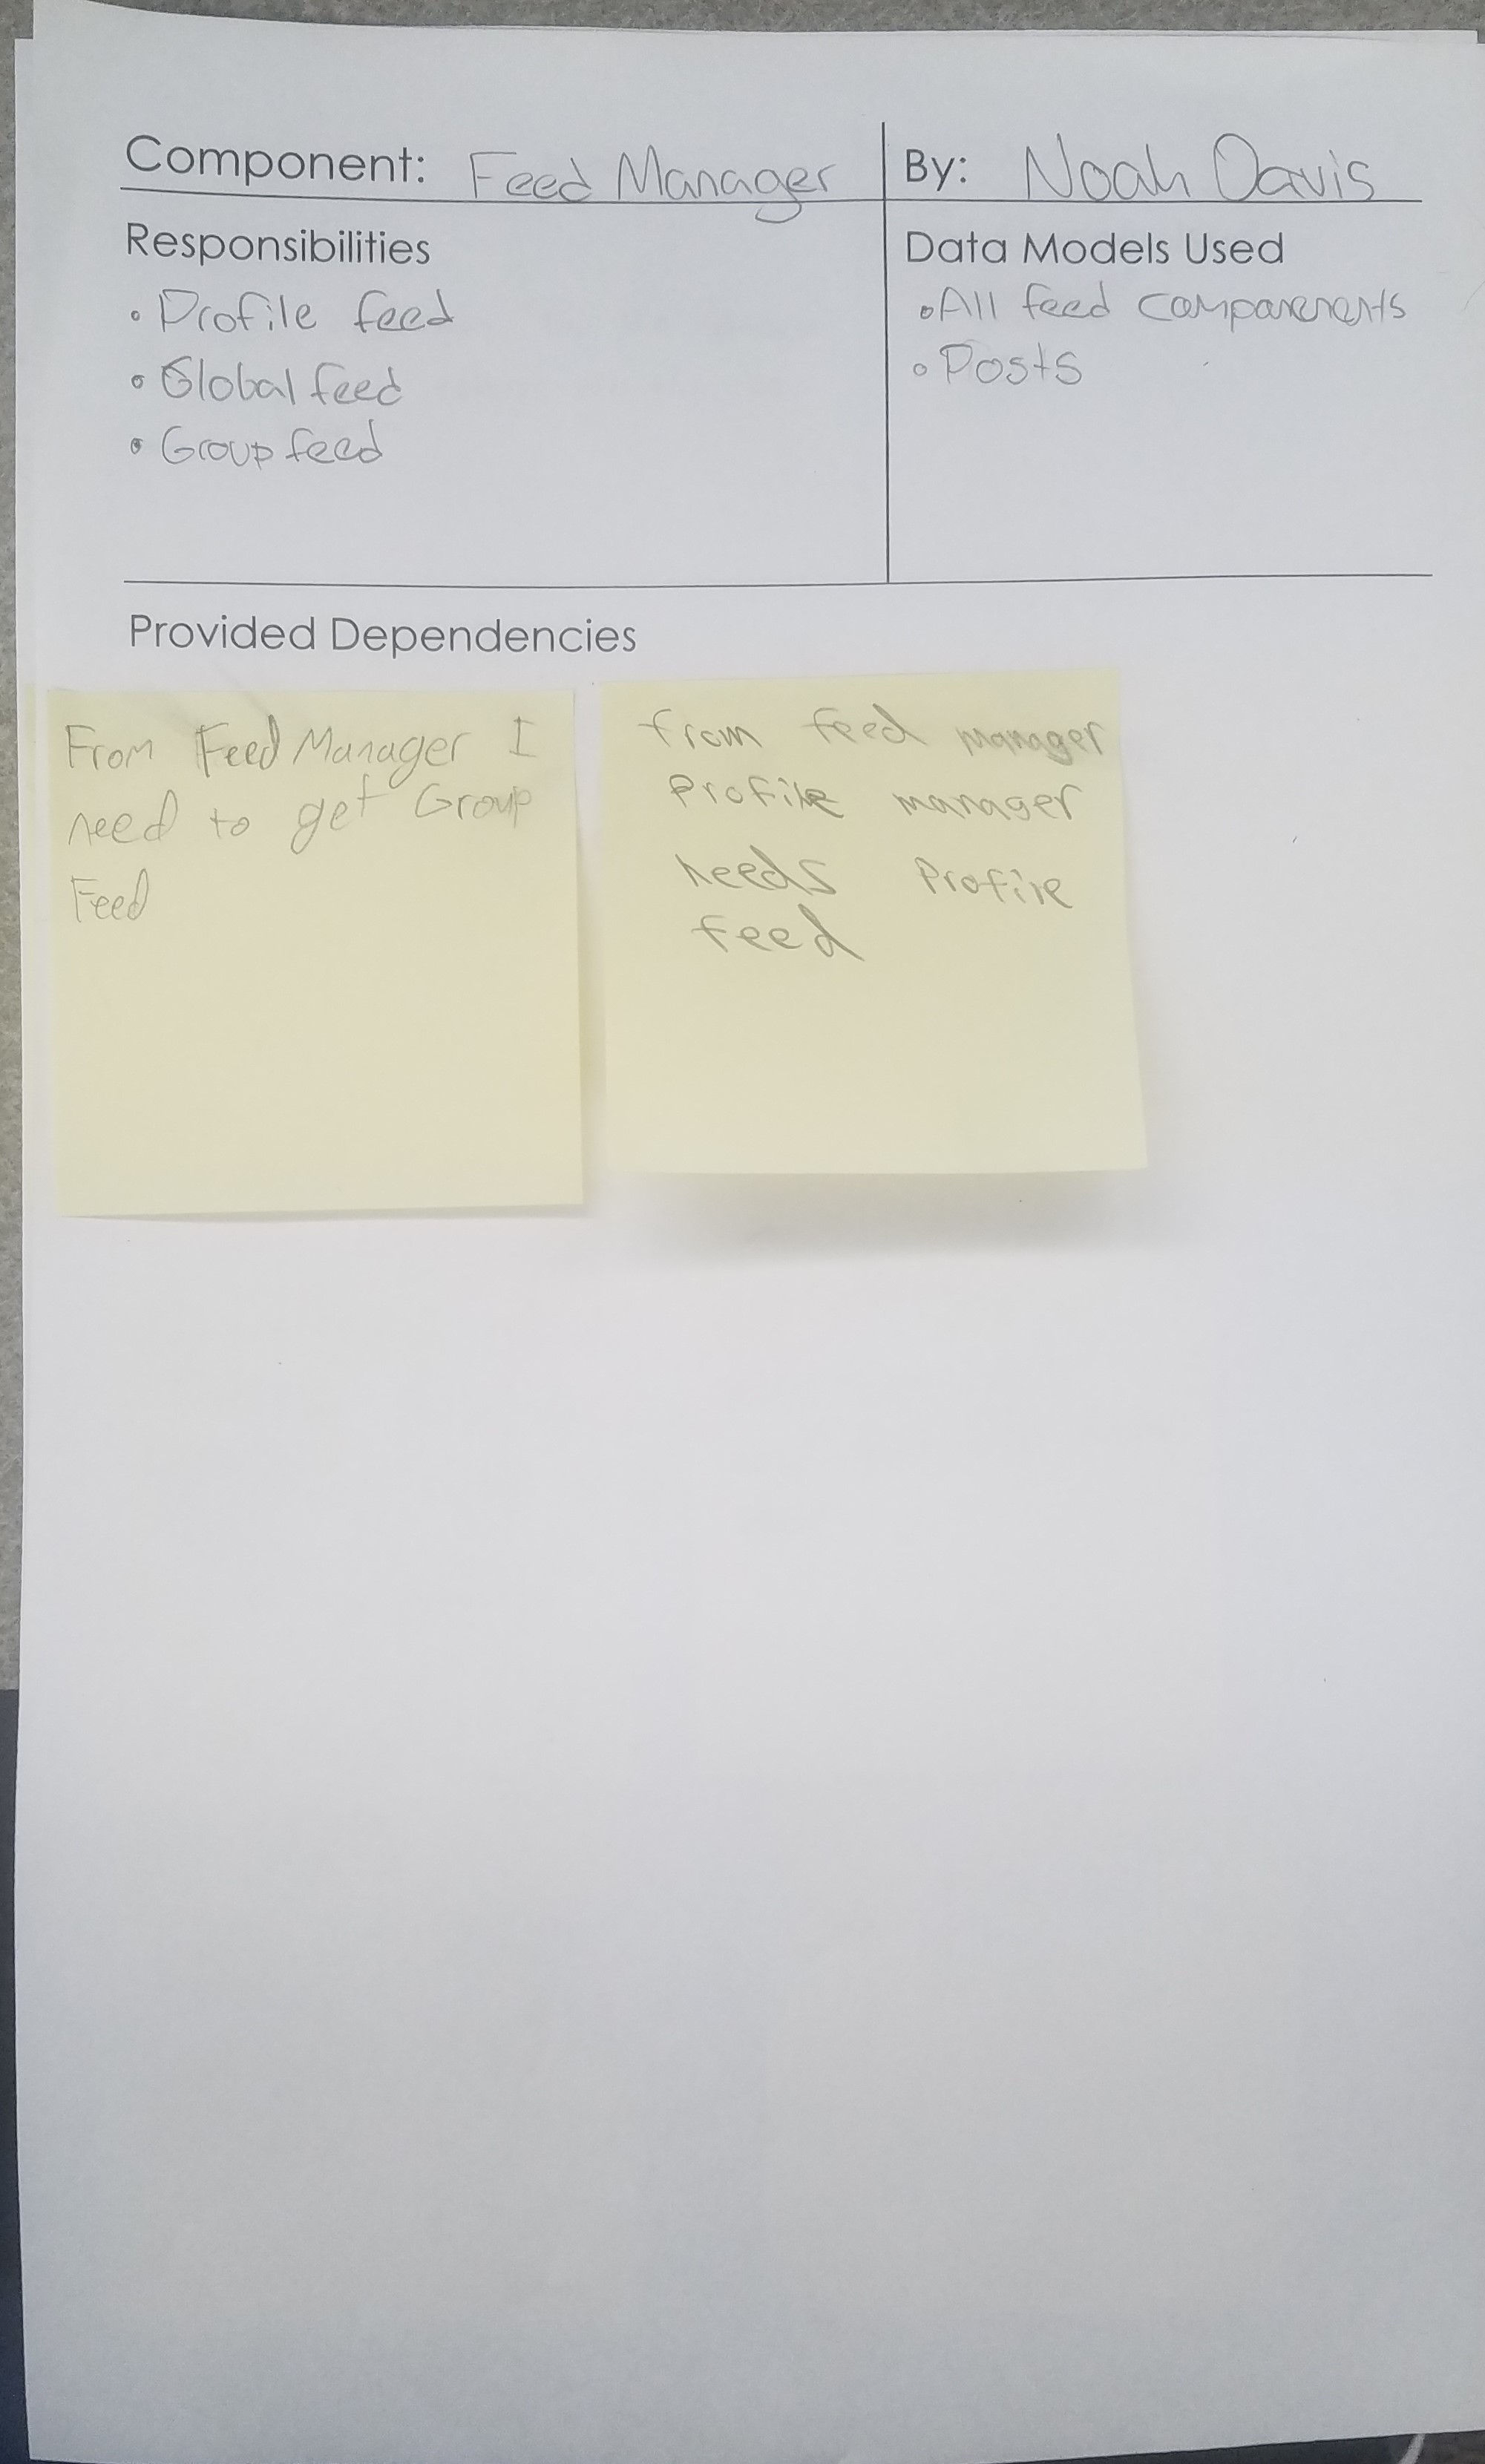 Component: Feed Manager
By: Noah Davis
Responsibilities
• Profile feed
• Global feed
• Group feed
Data Models Used
• All feed componenents
• Posts
Provided Dependencies
From Feed Manager I
need to get Group
Feed
from feed manager
Profile manager
needs Profile
feed